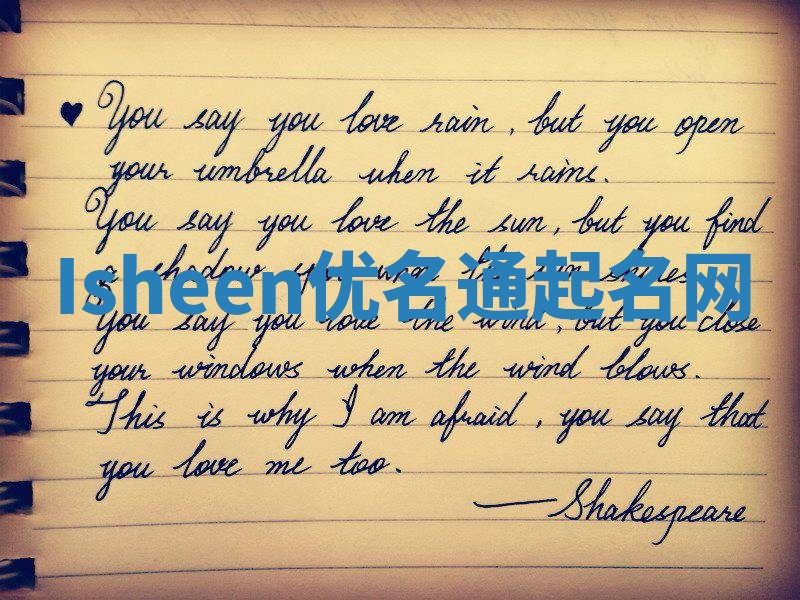 ♥ You say you love rain, but you open
your umbrella when it rains.
You say you love the sun, but you find
a shadow spot when the sun shines.
Isheen优名通起名网
You say you love the wind, but you close
your windows when the wind blows.
This is why I am afraid, you say that
you love me too.
— Shakespeare